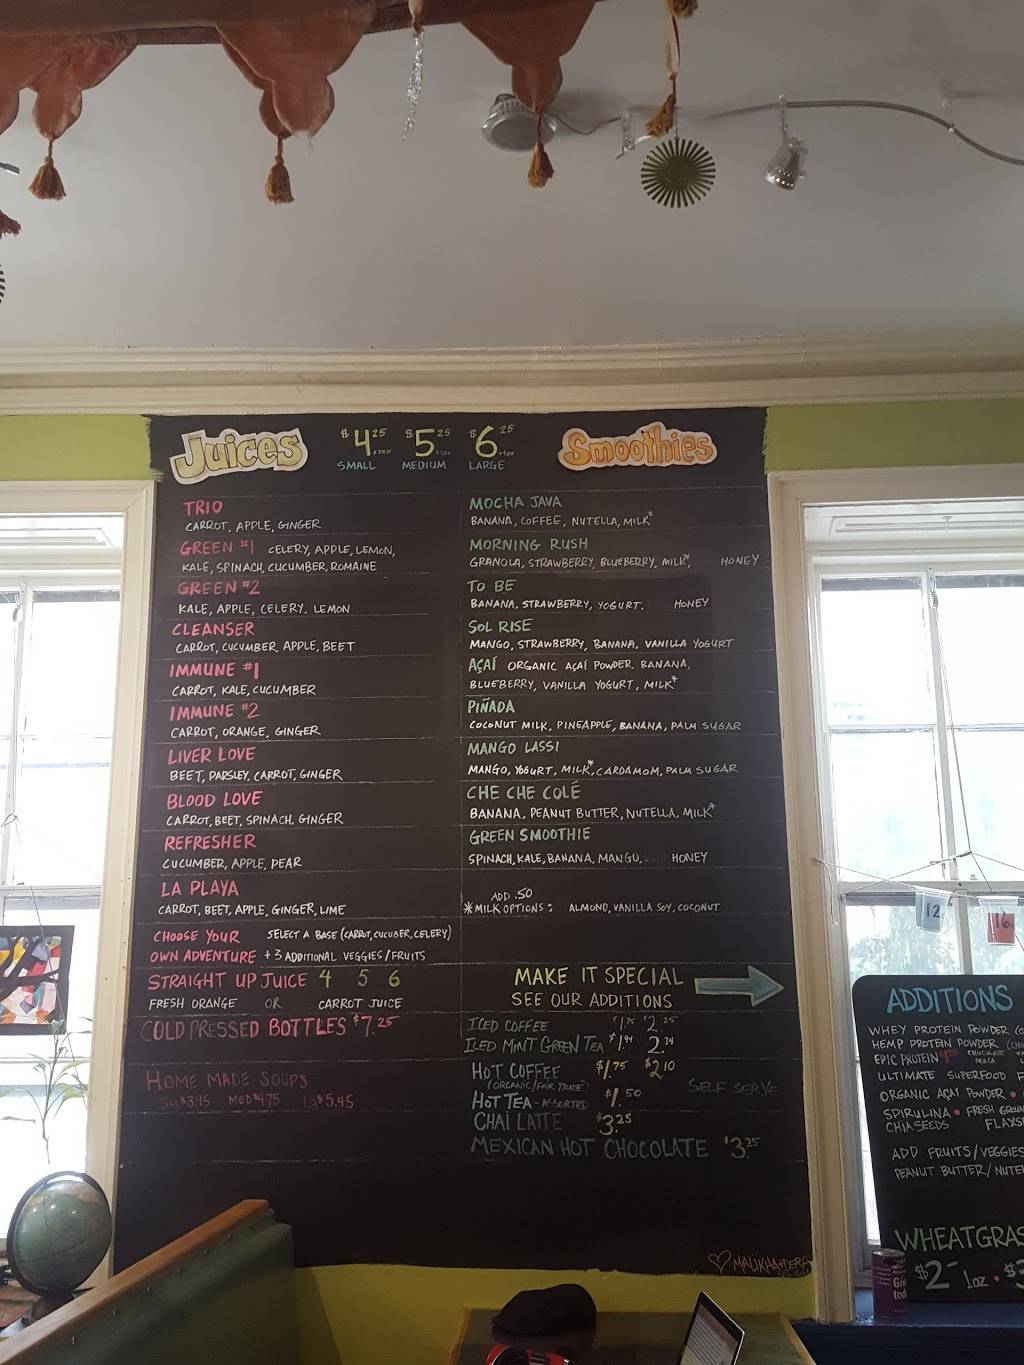 Juices
$4.25 +TAX $5.25 +tax $6.25 +tax
SMALL MEDIUM LARGE
Smoothies
TRIO
CARROT, APPLE, GINGER
GREEN #1 CELERY, APPLE, LEMON,
KALE, SPINACH, CUCUMBER, ROMAINE
GREEN #2
KALE, APPLE, CELERY, LEMON
CLEANSER
CARROT, CUCUMBER, APPLE, BEET
IMMUNE #1
CARROT, KALE, CUCUMBER
IMMUNE #2
CARROT, ORANGE, GINGER
LIVER LOVE
BEET, PARSLEY, CARROT, GINGER
BLOOD LOVE
CARROT, BEET, SPINACH, GINGER
REFRESHER
CUCUMBER, APPLE, PEAR
LA PLAYA
CARROT, BEET, APPLE, GINGER, LIME
CHOOSE YOUR SELECT A BASE (CARROT, CUCUBER, CELERY)
OWN ADVENTURE +3 ADDITIONAL VEGGIES/FRUITS
STRAIGHT UP JUICE 4 5 6
FRESH ORANGE OR CARROT JUICE
COLD PRESSED BOTTLES $7.25
HOME MADE SOUPS
Sm $3.95 MED $4.75 Lg $5.45
MOCHA JAVA
BANANA, COFFEE, NUTELLA, MILK*
MORNING RUSH
GRANOLA, STRAWBERRY, BLUEBERRY, MILK*, HONEY
TO BE
BANANA, STRAWBERRY, YOGURT, HONEY
SOL RISE
MANGO, STRAWBERRY, BANANA, VANILLA YOGURT
AÇAÍ ORGANIC AÇAÍ POWDER, BANANA,
BLUEBERRY, VANILLA YOGURT, MILK*
PIÑADA
COCONUT MILK, PINEAPPLE, BANANA, PALM SUGAR
MANGO LASSI
MANGO, YOGURT, MILK*, CARDAMOM, PALM SUGAR
CHE CHE COLÉ
BANANA, PEANUT BUTTER, NUTELLA, MILK*
GREEN SMOOTHIE
SPINACH, KALE, BANANA, MANGO, HONEY
ADD .50
*MILK OPTIONS: ALMOND, VANILLA SOY, COCONUT
MAKE IT SPECIAL
SEE OUR ADDITIONS
ICED COFFEE $1.75 $2.25
ICED MINT GREEN TEA $1.94 2.74
HOT COFFEE $1.75 $2.10
(ORGANIC/FAIR TRADE) SELF SERVE
HOT TEA - ASSORTED $1.50
CHAI LATTE $3.25
MEXICAN HOT CHOCOLATE $3.25
12
16
ADDITIONS
WHEY PROTEIN POWDER
HEMP PROTEIN POWDER
EPIC PROTEIN CHOCOLATE MACA
ULTIMATE SUPERFOOD
ORGANIC AÇAÍ POWDER •
SPIRULINA • FRESH
CHIA SEEDS
ADD FRUITS/VEGGIES
PEANUT BUTTER/
WHEATGRAS
$2 1oz • $